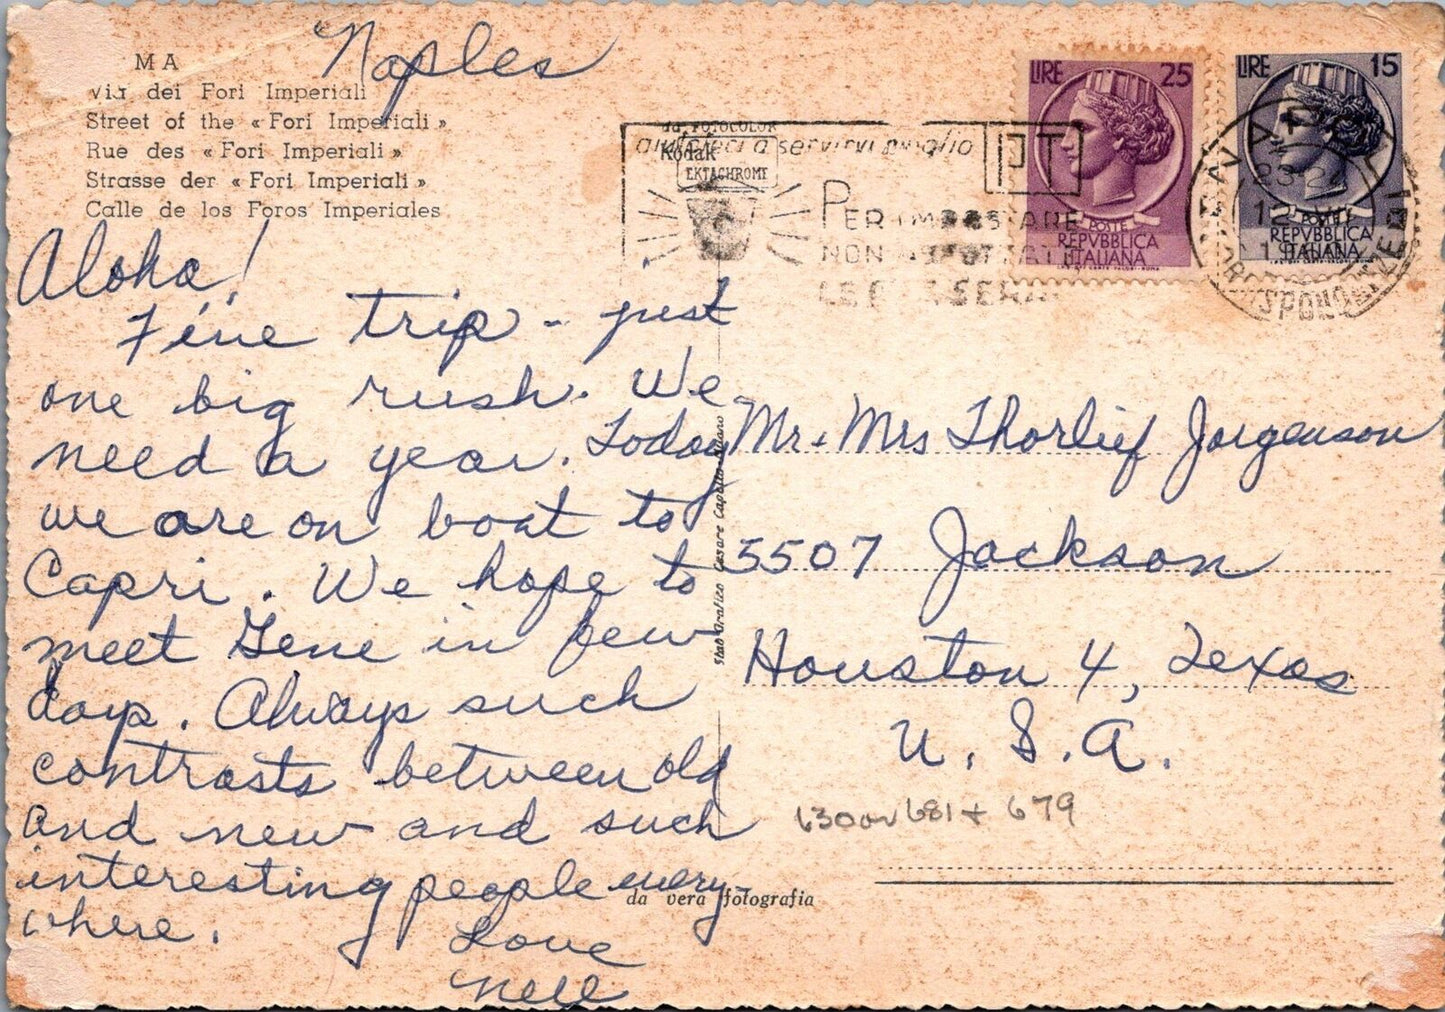 Naples
MA
Via dei Fori Imperiali
Street of the « Fori Imperiali »
Rue des « Fori Imperiali »
Strasse der « Fori Imperiali »
Calle de los Foros Imperiales
Aloha!
Fine trip - just
one big rush. We
need a year. Today
we are on boat to
Capri. We hope to
meet Gene in few
days. Always such
contrasts between old
and new and such
interesting people every-
where.
Love
Nell
da FOTOCOLOR
Kodak
EKTACHROME
aiutateci a servirvi meglio
PT
PER IMPOSTARE
NON ASPETTATE
LA SERA
LIRE 25
POSTE
REPVBBLICA
ITALIANA
LIRE 15
POSTE
REPVBBLICA
ITALIANA
Mr. & Mrs Thorlief Jorgenson
5507 Jackson
Houston 4, Texas
U. S. A.
630 or 681 + 679
Stab. Grafico Cesare Capello - Milano
da vera fotografia